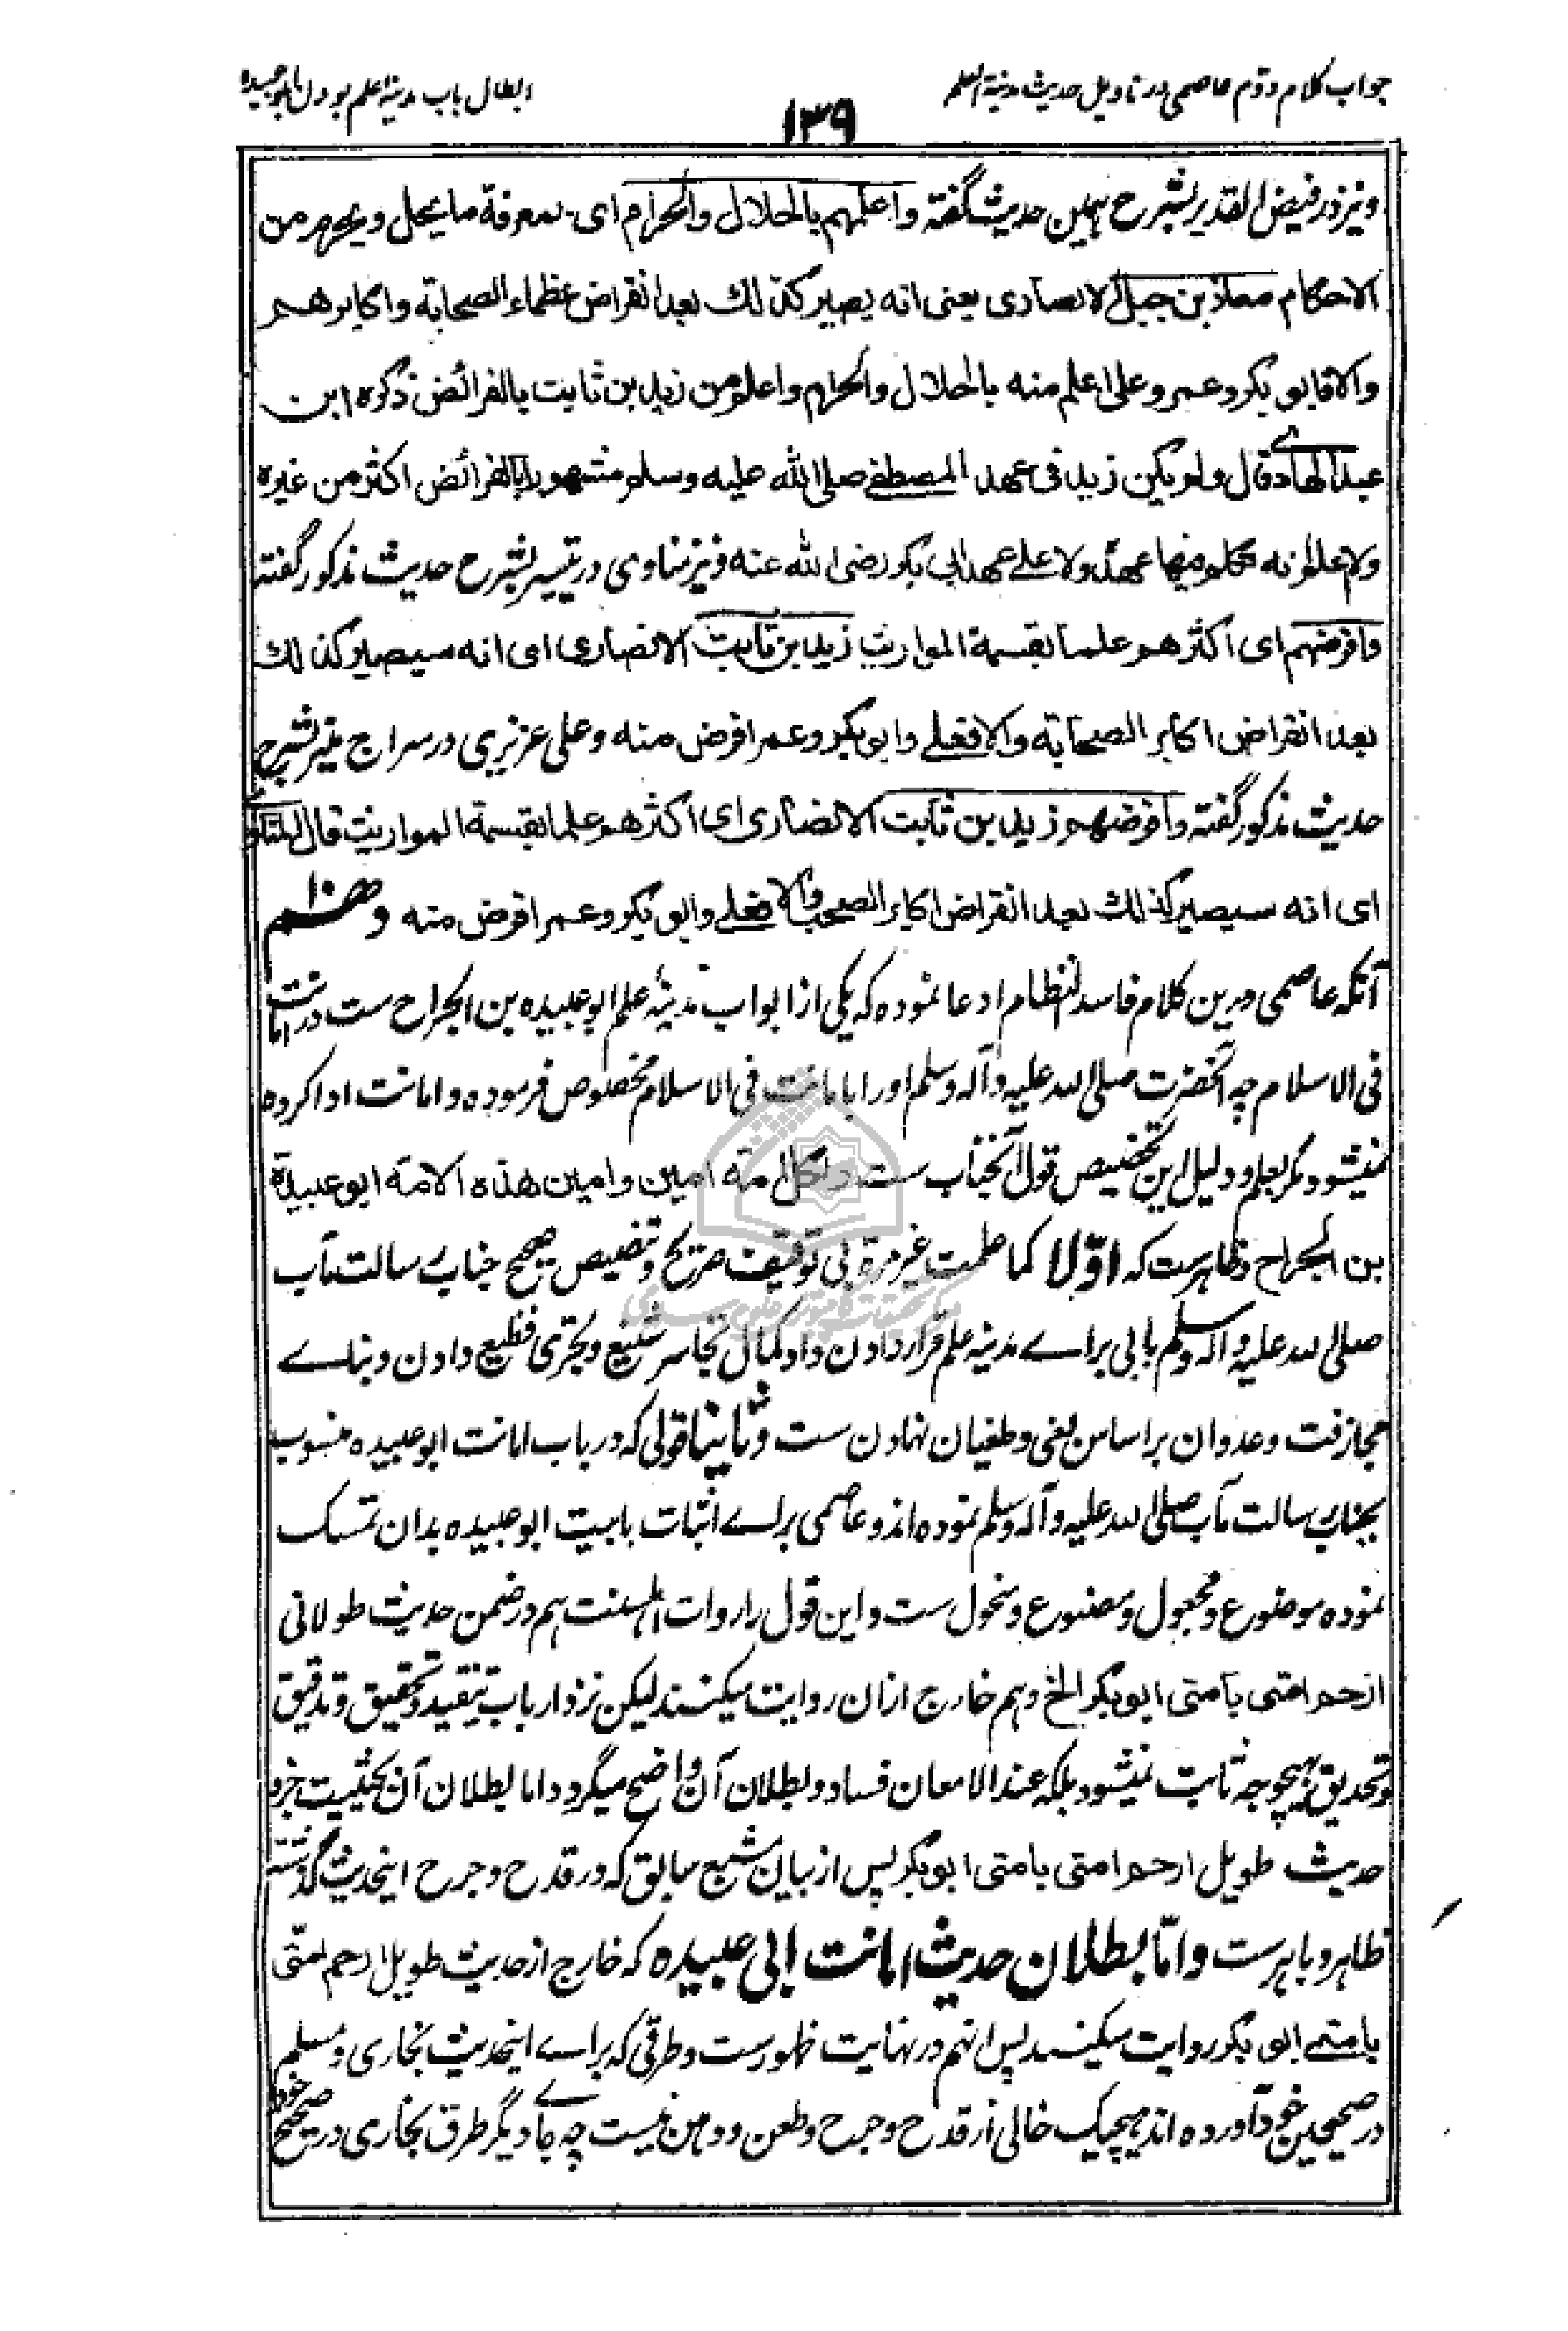 جواب کلام دوم عاصمی در تاویل حدیث مدینة العلم
ابطال باب مدینة علم بودن ابو عبیده
۱۳۹
و نیز در فیض القدیر بشرح همین حدیث گفته واعلمهم بالحلال والحرام ای بمعرفة ما یحل ویحرم من
الاحکام معاذ بن جبل الانصاری یعنی انه یصیر کذلک بعد انقراض عظماء الصحابة واکابرهم
والا فابو بکر وعمر وعلی اعلم منه بالحلال والحرام واعلم من زید بن ثابت بالفرائض ذکره ابن
عبد الهادی قال ولم یکن زید فی عهد المصطفے صلی الله علیه وسلم مشهورا بالفرائض اکثر من غیره
ولا اعلم انه تکلم فیها عهده ولا علے عهد ابی بکر رضی الله عنه و نیز مناوی در تیسیر بشرح حدیث مذکور گفته
وافرضهم ای اکثرهم علما بقسمة المواریث زید بن ثابت الانصاری ای انه سیصیر کذلک
بعد انقراض اکابر الصحابة والا فعلے وابو بکر وعمر افرض منه و علی عزیزی در سراج منیر بشرح
حدیث مذکور گفته وافرضهم زید بن ثابت الانصاری ای اکثرهم علما بقسمة المواریث قال المناوی
ای انه سیصیر کذلک بعد انقراض اکابر الصحب والا فعلے وابو بکر وعمر افرض منه و
آنکه عاصمی درین کلام فاسد النظام ادعا نموده که یکی از ابواب مدینۀ علم ابو عبیده بن الجراح ست در امانت
فی الاسلام چه آنحضرت صلی الله علیه وآله وسلم او را بامانت فی الاسلام مخصوص فرموده و امانت ادا کرده
نمیشود مگر بعلم و دلیل این تخصیص قول آنجناب ست ولکل امة امین وامین هذه الامة ابو عبیدة
بن الجراح و ظاهرست که اوّلا کما علمت غیر مرة بی توقیف صریح و تنصیص صحیح جناب رسالت مآب
صلی الله علیه وآله وسلم بابی براے مدینه علم قرار دادن داد کمال تجاسر شنیع و تجری فظیع دادن و بناے
مجازفت و عدوان بر اساس بغی و طغیان نهادن ست و ثانیا قولی که در باب امانت ابو عبیده منسوب
بجناب رسالت مآب صلی الله علیه وآله وسلم نموده اند و عاصمی براے اثبات بابیت ابو عبیده بدان تمسک
نموده موضوع و مجعول و مصنوع و منحول ست و این قول را روات اهل سنت هم در ضمن حدیث طولانی
ارحم امتی بامتی ابو بکر الخ و هم خارج ازان روایت میکنند لیکن نزد ارباب تنقید و تحقیق و تدقیق
و تحدیق بهیچوجه ثابت نمیشود بلکه عند الامعان فساد و بطلان آن واضح میگردد اما بطلان آن بحیثیت جزو
حدیث طویل ارحم امتی بامتی ابو بکر پس از بیان مشبع سابق که در قدح و جرح اینحدیث گذشته
ظاهر و باهرست و امّا بطلان حدیث امانت ابی عبیده که خارج از حدیث طویل ارحم امتی
بامتی ابو بکر روایت میکنند پس آنهم در نهایت ظهورست و طرقی که براے اینحدیث بخاری و مسلم
در صحیحین خود آورده اند هیچیک خالی از قدح و جرح و طعن و وهن نیست چه جاے دیگر طرق بخاری در صحیح خود